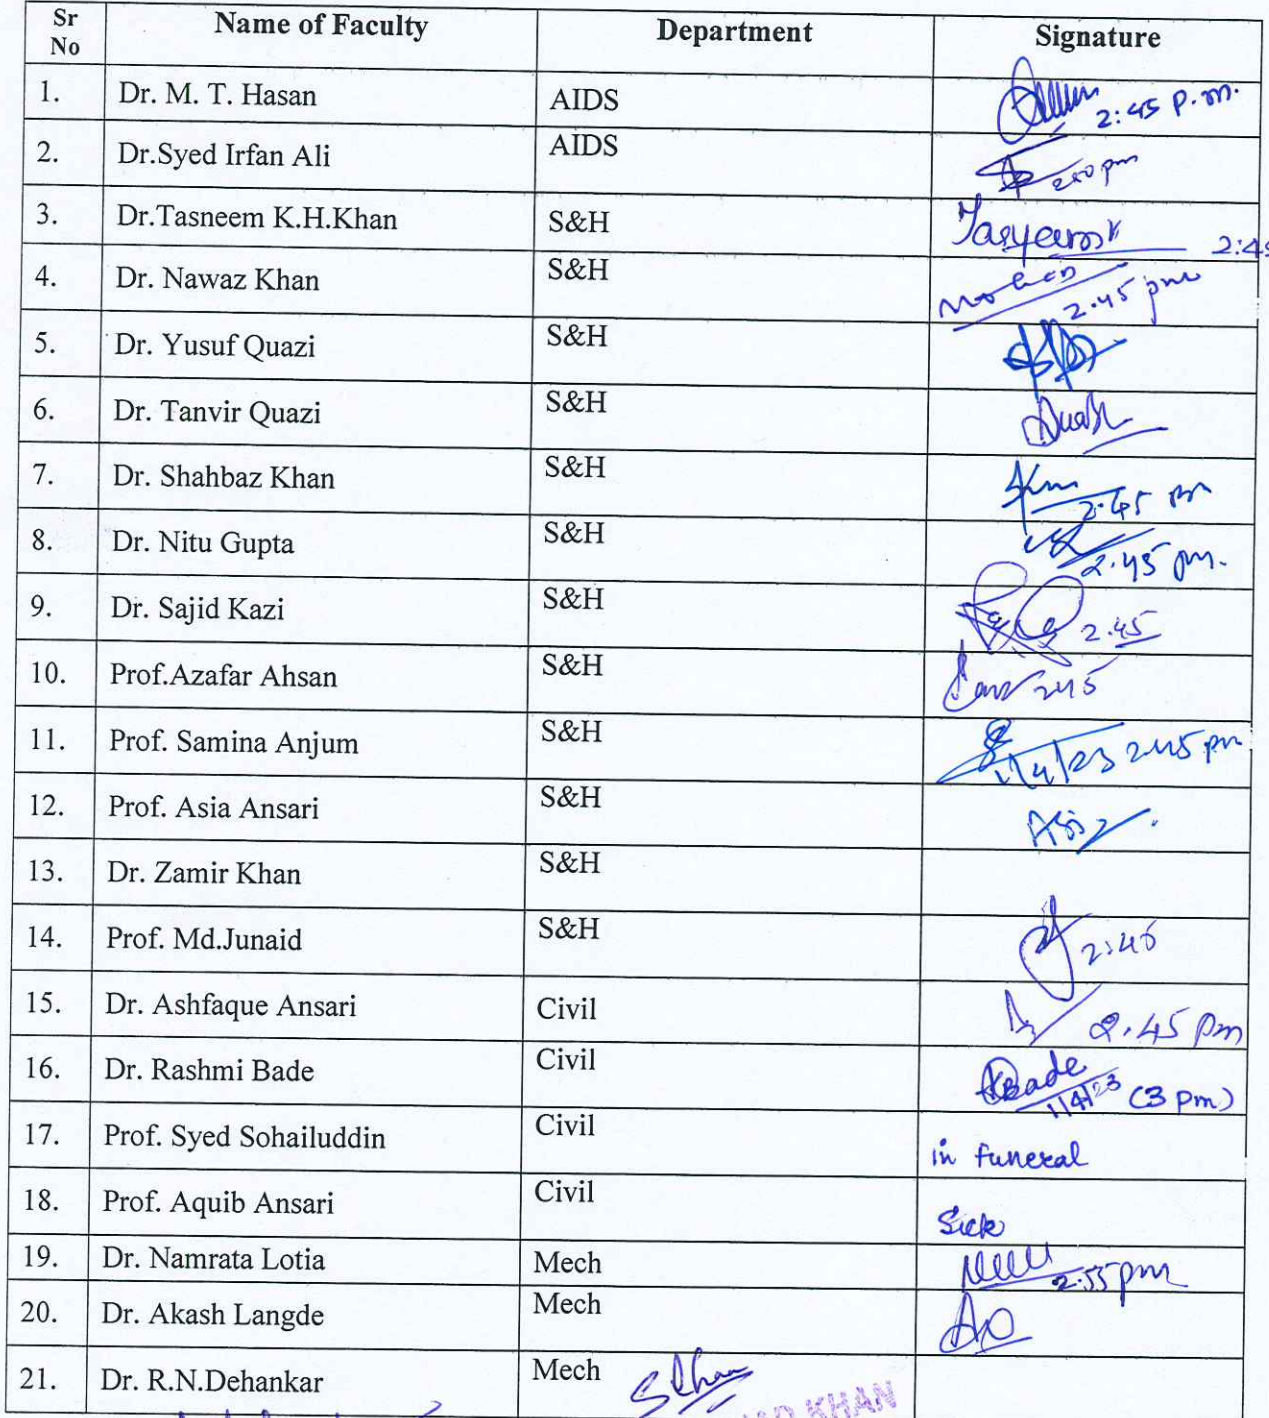 Sr No Name of Faculty Department Signature
1. Dr. M. T. Hasan AIDS 2:45 p.m.
2. Dr.Syed Irfan Ali AIDS pm
3. Dr.Tasneem K.H.Khan S&H 2:45
4. Dr. Nawaz Khan S&H 2.45 pm
5. Dr. Yusuf Quazi S&H
6. Dr. Tanvir Quazi S&H
7. Dr. Shahbaz Khan S&H 2.45 pm
8. Dr. Nitu Gupta S&H 2.45 pm.
9. Dr. Sajid Kazi S&H 2.45
10. Prof.Azafar Ahsan S&H 245
11. Prof. Samina Anjum S&H 1/4/23 2.45 pm
12. Prof. Asia Ansari S&H
13. Dr. Zamir Khan S&H
14. Prof. Md.Junaid S&H 2:45
15. Dr. Ashfaque Ansari Civil 2.45 pm
16. Dr. Rashmi Bade Civil Bade 1/4/23 (3 pm)
17. Prof. Syed Sohailuddin Civil in funeral
18. Prof. Aquib Ansari Civil Sick
19. Dr. Namrata Lotia Mech 2.55 pm
20. Dr. Akash Langde Mech
21. Dr. R.N.Dehankar Mech
KHAN